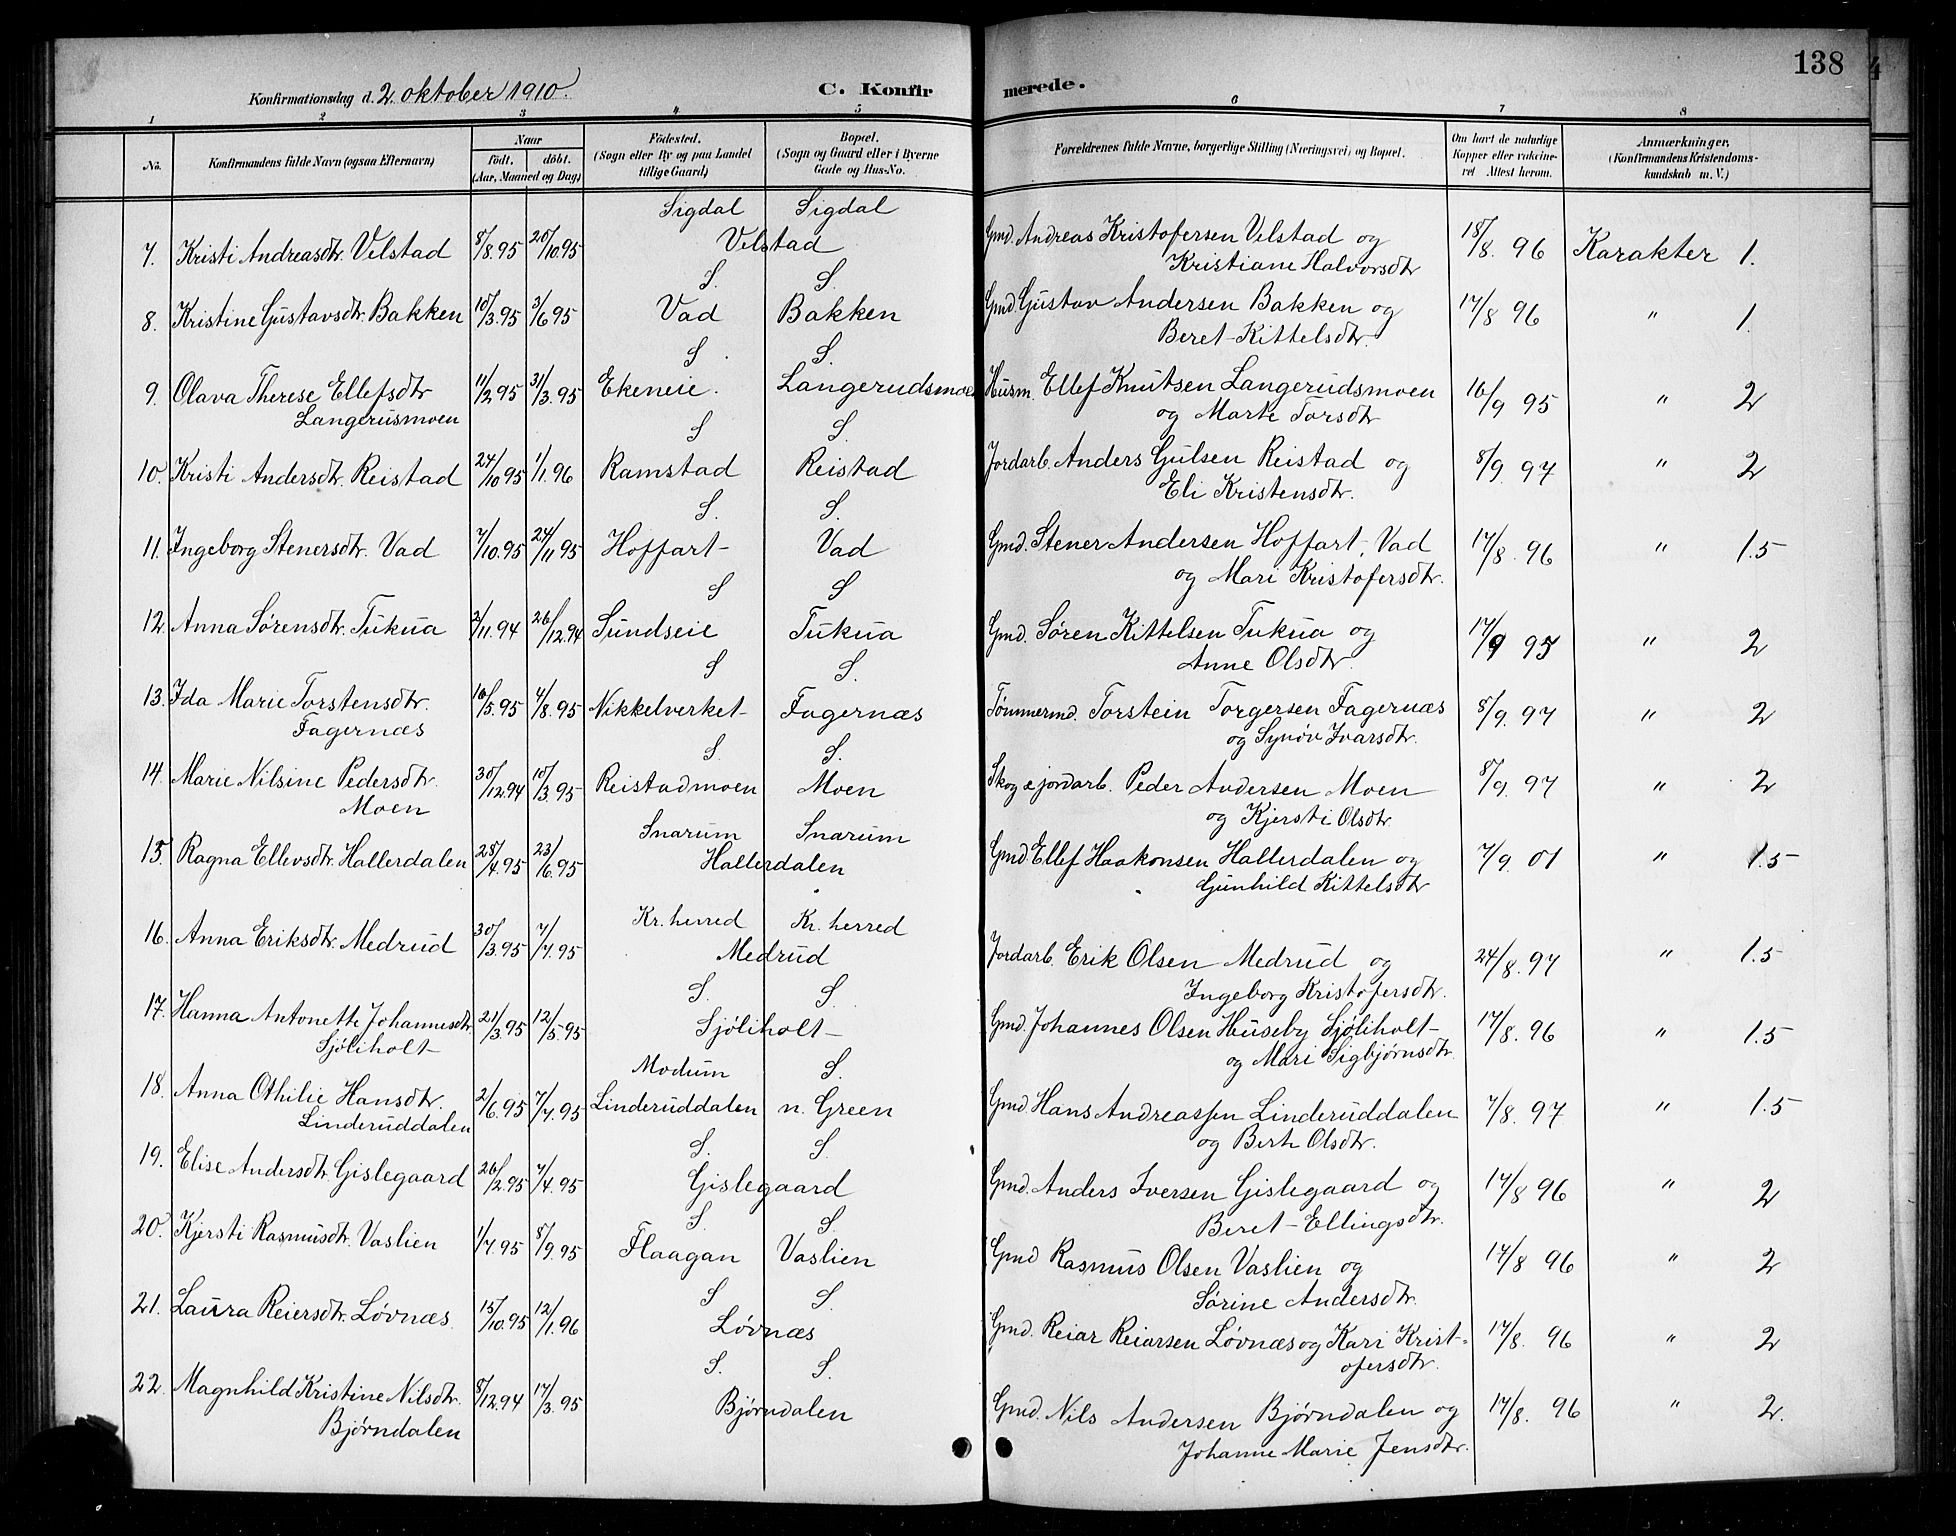 138
Konfirmationsdag d. 2 oktober 1910.
C. Konfirmerede.
1 2 3 4 5 6 7 8
No.
Konfirmandens fulde Navn (ogsaa Efternavn)
Naar
födt. döbt.
(Aar, Maaned og Dag)
Födested.
(Sogn eller By og paa Landet
tillige Gaard)
Bopæl.
(Sogn og Gaard eller i Byerne
Gade og Hus-No.
Forældrenes fulde Navne, borgerlige Stilling (Næringsvei) og Bopæl.
Om havt de naturlige
Kopper eller vakcineret
Attest herom.
Anmærkninger.
(Konfirmandens Kristendomskundskab
m. V.)
Sigdal Sigdal
7. Kristi Andreasdtr. Velstad 8/8.95 20/10.95 Velstad Gmd. Andreas Kristofersen Velstad og 18/8. 96 Karakter 1.
Kristiane Halvorsdtr
S. S.
8. Kristine Gustavsdtr. Bakken 10/3.95 3/6 95 Vad Bakken Gmd. Gustav Andersen Bakken og 17/8 96 " 1.
Beret Kittelsdtr.
S. S.
9. Olava Therese Ellefsdtr 11/2 95 31/3.95 Ekeneie. Langerudsmoen Husm. Ellef Knutsen Langerudsmoen 16/9 95 " 2
Langerusmoen og Marte Torsdtr
S S.
10. Kristi Andersdtr. Reistad 24/10 95 1/1.96 Ramstad Reistad Jordarb. Anders Gulsen Reistad og 8/9. 97 " 2
Eli Kristensdtr.
S. S.
11. Ingeborg Stenersdtr. Vad 7/10.95 24/11 95 Hoffart Vad Gmd. Stener Andersen Hoffart, Vad 17/8. 96 " 1.5
og Mari Kristofersdtr.
S S
12. Anna Sørensdtr. Tukua 2/11.94 26/12.94 Sundseie Tukua Gmd. Søren Kittelsen Tukua og 17/9 95 " 2
Anne Olsdtr.
S S.
13. Ida Marie Torstensdtr. 16/5.95 4/8.95 Nikkelverket Fagernæs Tømmermd. Torstein Torgersen Fagernæs 8/9. 97 " 2
Fagernæs og Synøv Ivarsdtr.
S. S.
14. Marie Nilsine Pedersdtr. 30/12.94 10/3.95 Reistadmoen Moen Skog & jordarb. Peder Andersen Moen 8/9. 97 " 2
Moen og Kjersti Olsdtr
Snarum Snarum
15. Ragna Ellevsdtr. Hallerdalen 28/4.95 23/6.95 Hallerdalen Gmd Ellef Haakonsen Hallerdalen og 7/9. 01 " 1.5
Gunhild Kittelsdtr
Kr. herred Kr. herred
16. Anna Eriksdtr. Medrud 30/3.95 7/7.95 Medrud Jordarb. Erik Olsen Medrud og 24/8.97 " 1.5
Ingeborg Kristofersdtr.
S. S.
17. Hanna Antonette Johannesdtr. 21/3.95 12/5.95 Sjøliholt Gmd. Johannes Olsen Huseby Sjøliholt 17/8. 96 " 1.5
Sjøliholt og Mari Sigbjørnsdtr.
Modum S.
18. Anna Othilie Hansdtr. 2/6.95 7/7.95 Linderuddalen n. Green Gmd Hans Andreassen Linderuddalen 7/8. 97 " 1.5
Linderuddalen og Berte Olsdtr.
S. S.
19. Elise Andersdtr. Gislegaard 26/2.95 7/4.95 Gislegaard Gmd. Anders Iversen Gislegaard og 17/8 96 " 2
Beret Ellingsdtr.
S. S
20. Kjersti Rasmusdtr. Vaslien 1/7.95 8/9.95 Flaagan Vaslien Gmd Rasmus Olsen Vaslien og 17/8 96 " 2
Sørine Andersdtr.
S S.
21. Laura Reiersdtr. Løvnæs 15/10.95 12/1.96 Løvnæs Gmd. Reiar Reiarsen Løvnæs og Kari Krist- 17/8. 96 " 2
ofersdtr.
S. S.
22. Magnhild Kristine Nilsdtr. 8/12.94 17/3.95 Bjørndalen Gmd. Nils Andersen Bjørndalen og 17/8. 96 " 2.
Bjørndalen Johanne Marie Jensdtr.